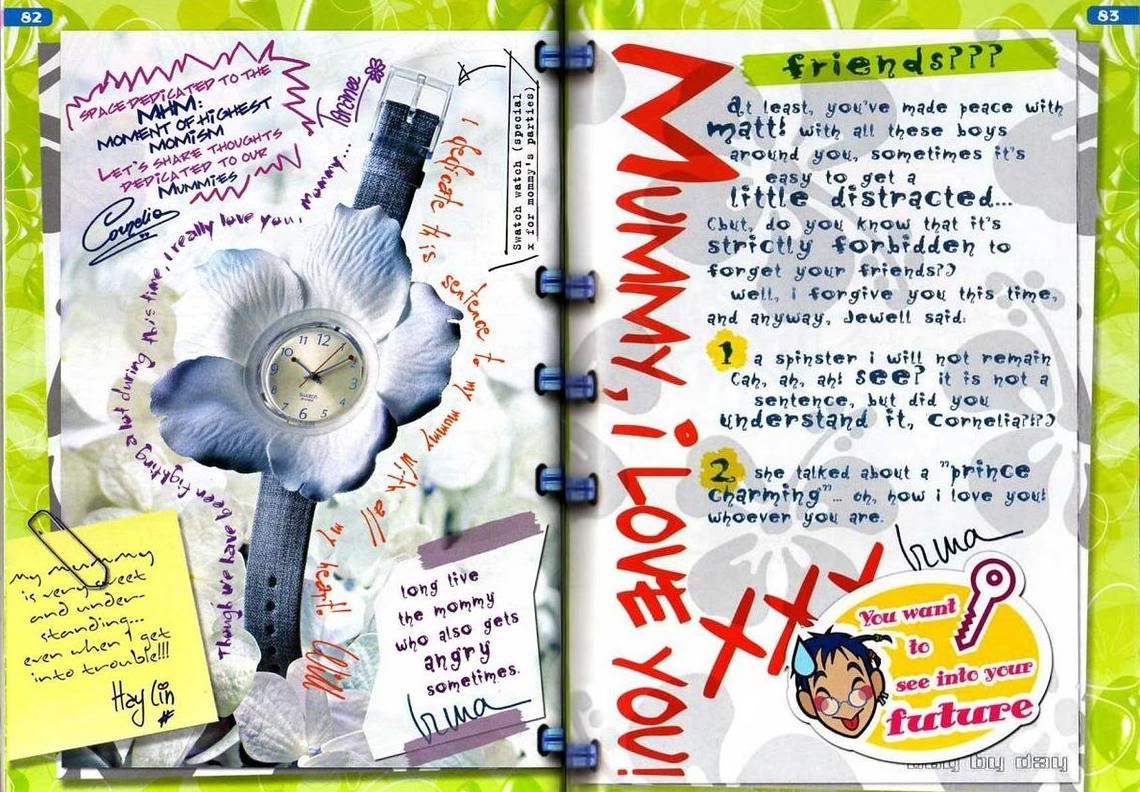 82
SPACE DEDICATED TO THE
MHM:
MOMENT OF HIGHEST
MOMISM
LET'S SHARE THOUGHTS
DEDICATED TO OUR
MUMMIES
Cornelia
Though we have been fighting a lot during this time, I really love you, mummy...
Taranee
Swatch watch (special
x for mommy's parties)
I dedicate this sentence to my mummy with all
my heart!
Will
12
11
10
9
8
7
6
5
4
3
2
1
swatch
my mummy
is very sweet
and under-
standing...
even when I get
into trouble!!!
Hay Lin
long live
the mommy
who also gets
angry
sometimes.
Irma
83
MUMMY, I LOVE YOU!
friends???
At least, you've made peace with
matt! with all these boys
around you, sometimes it's
easy to get a
little distracted...
(but, do you know that it's
strictly forbidden to
forget your friends?)
well, i forgive you this time,
and anyway, Jewell said:
1 a spinster i will not remain
(ah, ah, ah! see? it is not a
sentence, but did you
understand it, Cornelia?!?)
2. she talked about a "prince
charming"... oh, how i love you!
whoever you are.
Irma
You want
to
see into your
future
day by day